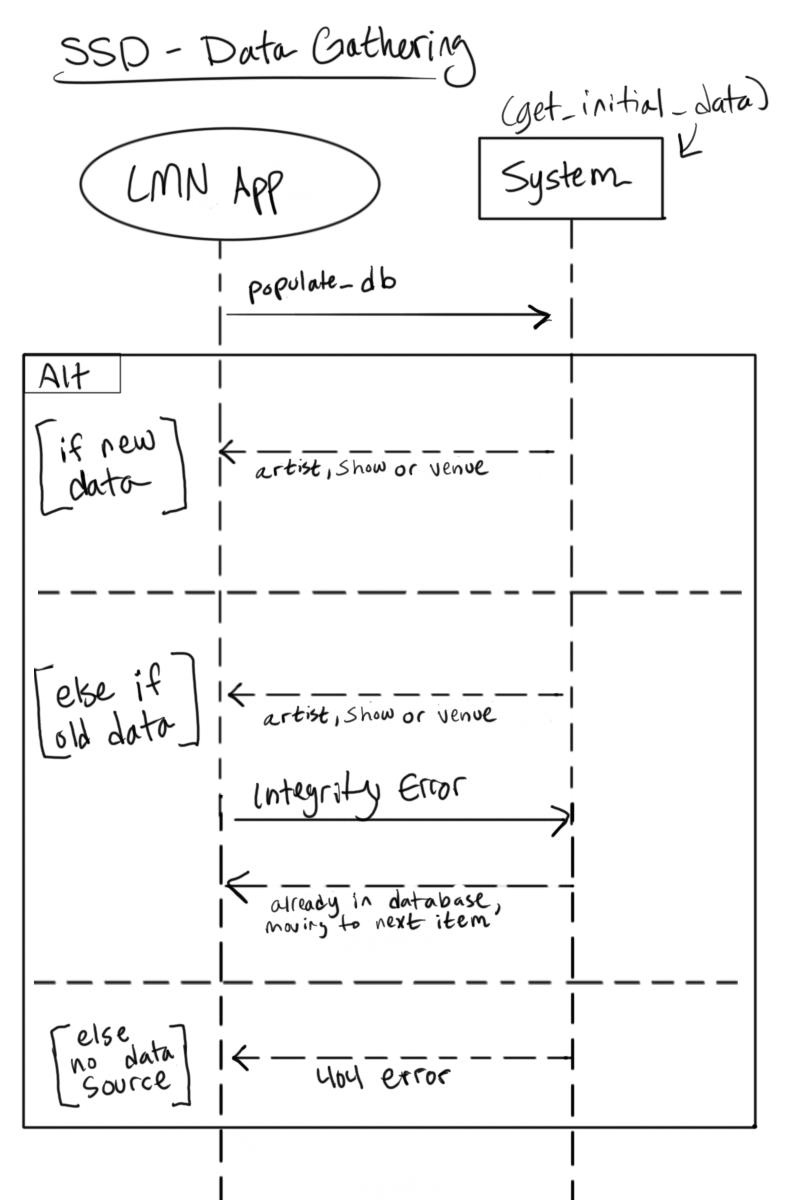 SSD - Data Gathering
(get_initial_data)
LMN App
System
populate_db
Alt
if new
data
artist, show or venue
else if
old data
artist, show or venue
Integrity Error
already in database,
moving to next item
else
no data
source
404 error